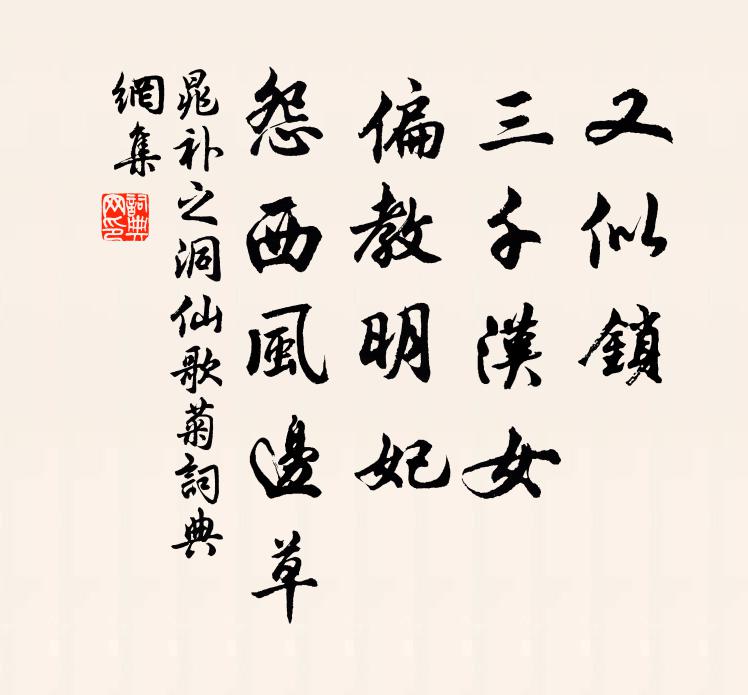 又似鎖
三千漢女
偏教明妃
怨西風邊草
晁补之洞仙歌菊詞典
網集
詞典
网印